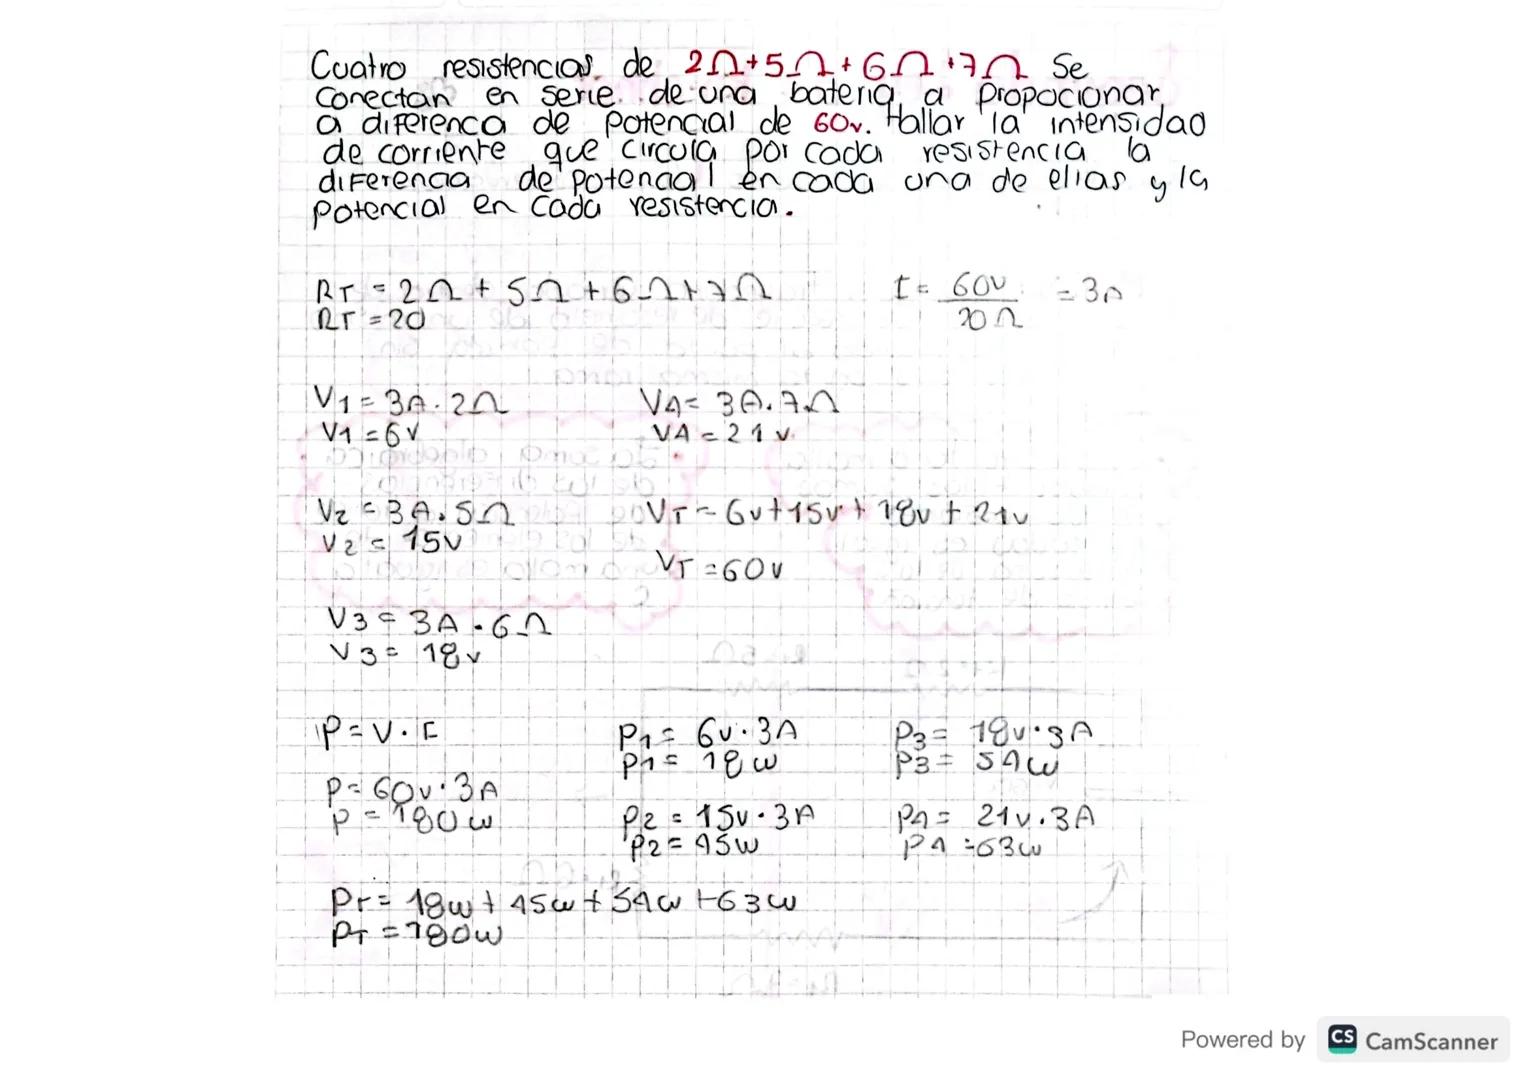 Cuatro resistencias de 2Ω+5Ω+6Ω+7Ω Se
conectan en serie de una bateria a Propocionar
a diferenca de Potencial de 60v. Hallar la intensidad
de corriente que circula por cada resistencia la
diferencia de potencial en cada una de ellas y la
Potencial en cada resistencia.
RT = 2Ω + 5Ω + 6Ω+7Ω
RT = 20
I = 60v / 20Ω = 3A
V1 = 3A.2Ω
V1 = 6v
V4 = 3A.7Ω
V4 = 21v
V2 = 3A.5Ω
V2 = 15v
VT = 6v+15v+ 18v + 21v
VT = 60v
V3 = 3A.6Ω
V3 = 18v
P = V.I
P = 60v.3A
P = 180w
P1 = 6v.3A
P1 = 18w
P2 = 15v.3A
P2 = 45w
P3 = 18v.3A
P3 = 54w
P4 = 21v.3A
P4 = 63w
PT = 18w + 45w + 54w +63w
PT = 180w
Powered by CS CamScanner